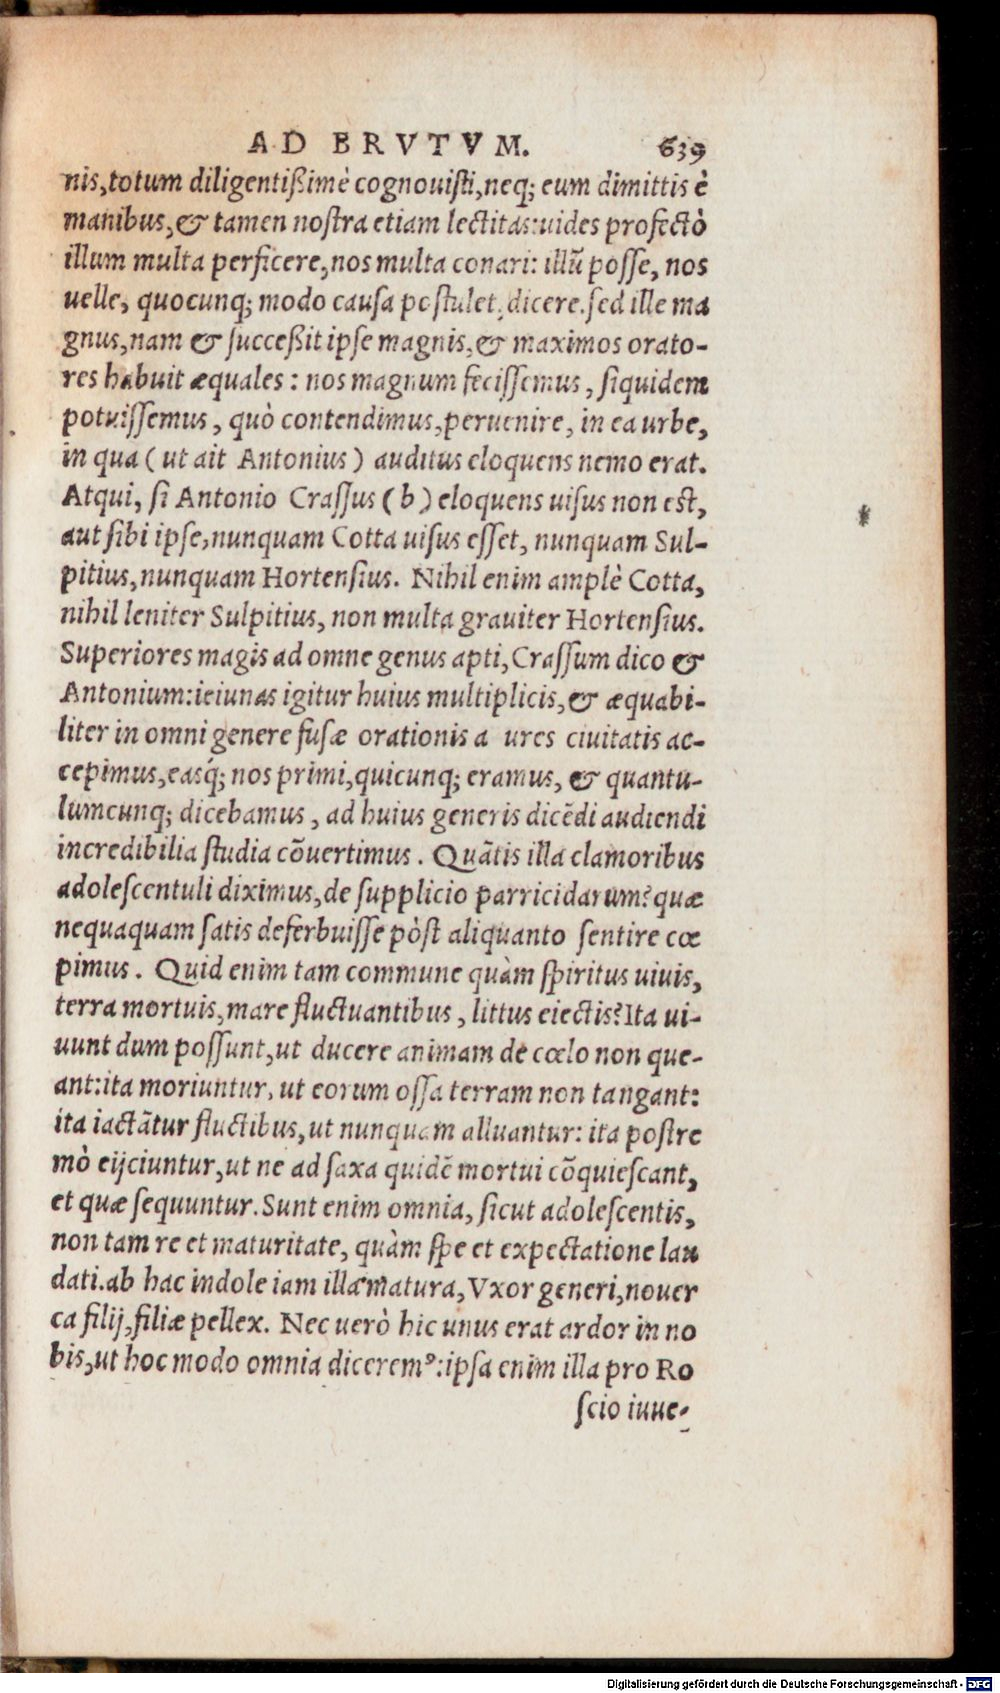 AD BRVTVM. 639
nis,totum diligentißimè cognouiſti,neq; eum dimittis è
manibus,& tamen noſtra etiam lectitas:uides profectò
illum multa perficere,nos multa conari: illũ poſſe, nos
uelle, quocunq; modo cauſa poſtulet,dicere.ſed ille ma
gnus,nam & ſucceßit ipſe magnis,& maximos orato-
res habuit æquales : nos magnum feciſſemus, ſiquidem
potuiſſemus, quò contendimus,peruenire, in ea urbe,
in qua (ut ait Antonius) auditus eloquens nemo erat.
Atqui, ſi Antonio Craſſus (b) eloquens uiſus non eſt,
aut ſibi ipſe,nunquam Cotta uiſus eſſet, nunquam Sul-
pitius,nunquam Hortenſius. Nihil enim amplè Cotta,
nihil leniter Sulpitius, non multa grauiter Hortenſius.
Superiores magis ad omne genus apti,Craſſum dico &
Antonium:ieiunas igitur huius multiplicis,& æquabi-
liter in omni genere fuſæ orationis a ures ciuitatis ac-
cepimus,easq́; nos primi,quicunq; eramus, & quantu-
lumcunq; dicebamus, ad huius generis dicẽdi audiendi
incredibilia ſtudia cõuertimus. Quãtis illa clamoribus
adoleſcentuli diximus,de ſupplicio parricidarum?quæ
nequaquam ſatis deferbuiſſe pòſt aliquanto ſentire cœ
pimus. Quid enim tam commune quàm ſpiritus uiuis,
terra mortuis,mare fluctuantibus, littus eiectis?Ita ui-
uunt dum poſſunt,ut ducere animam de cœlo non que-
ant:ita moriuntur, ut eorum oſſa terram non tangant:
ita iactãtur fluctibus,ut nunquam alluantur: ita poſtre
mò eijciuntur,ut ne ad ſaxa quidẽ mortui cõquieſcant,
et quæ ſequuntur.Sunt enim omnia, ſicut adoleſcentis,
non tam re et maturitate, quàm ſpe et expectatione lau
dati.ab hac indole iam illa matura, Vxor generi,nouer
ca filij,filiæ pellex. Nec uerò hic unus erat ardor in no
bis,ut hoc modo omnia dicerem⁹:ipſa enim illa pro Ro
ſcio iuue-
Digitalisierung gefördert durch die Deutsche Forschungsgemeinschaft - DFG